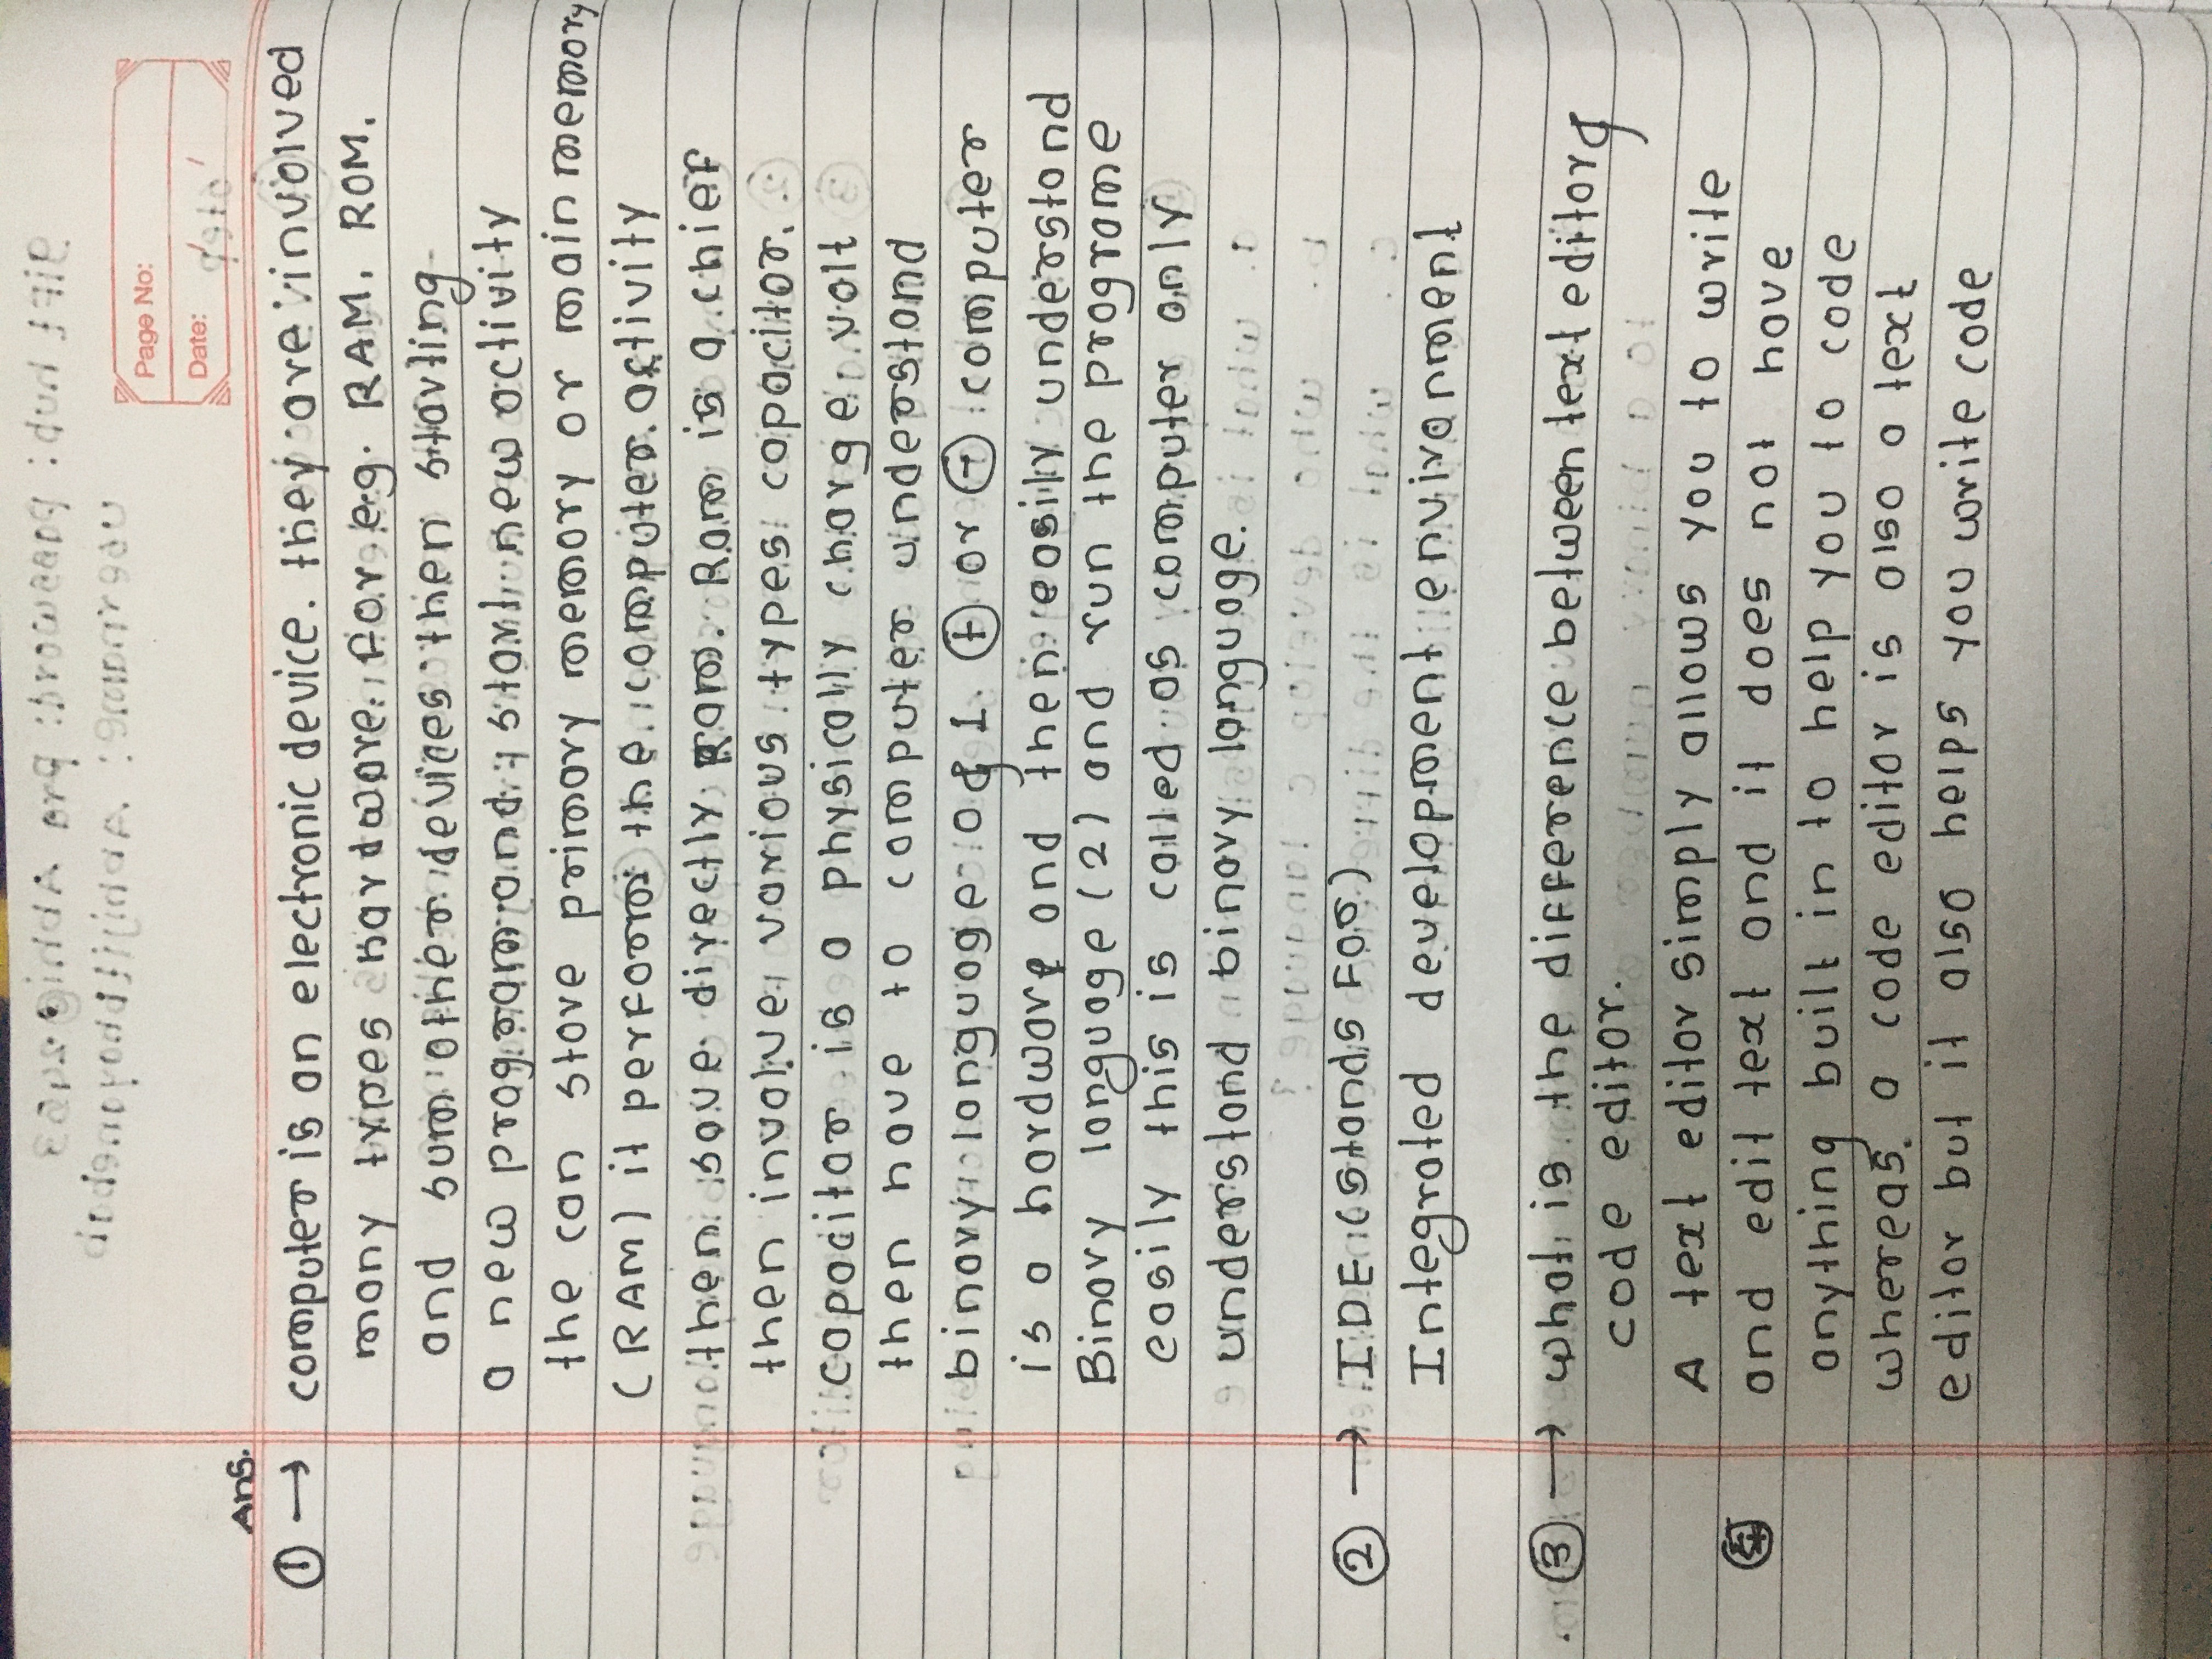 Page No:
Date: / /
Ans.
① → computer is an electronic device. they are involved
many types hardware. for e.g. RAM, ROM,
and sum other devices then starting
a new program and start new activity
the can store primary memory or main memory
(RAM) it perform the computer activity
then save directly Ram. Ram is a chief
then involve various types capacitor.
capacitor is a physically charge volt
then have to computer understand
binary language 0 & 1. ⊕ or ⊖ computer
is a hardware and then easily understand
Binary language (2) and run the programe
easily this is called as computer only
understand binary language.
② → IDE (Stands For)
Integrated development environment
③ → what is the difference between text editor &
code editor.
A text editor simply allows you to write
and edit text and it does not have
anything built in to help you to code
whereas, a code editor is also a text
editor but it also helps you write code